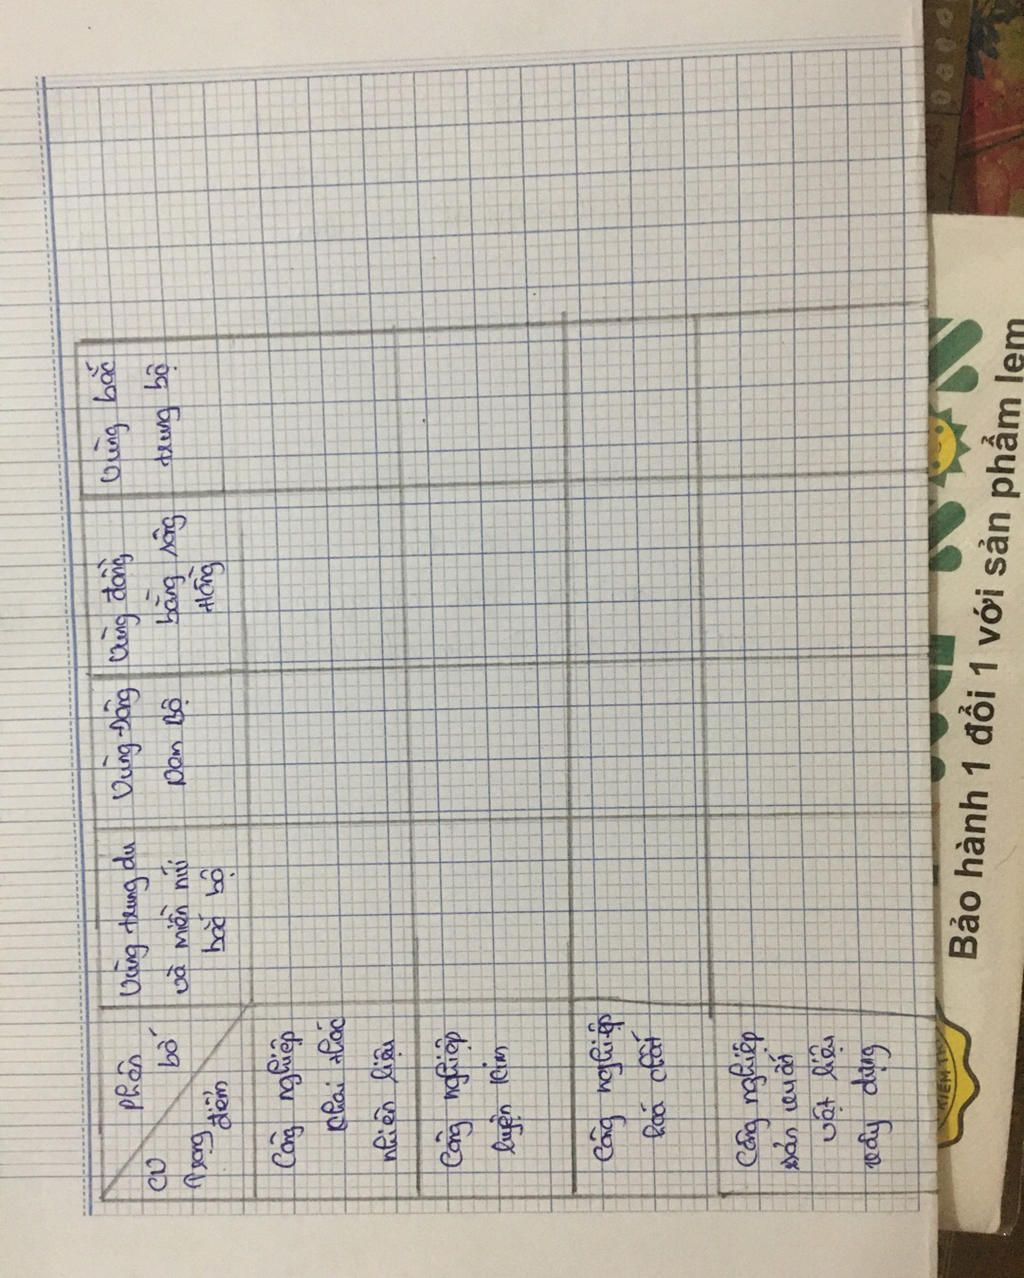 Phân
bố
CN
Trọng
điểm
Vùng trung du
và miền núi
bắc bộ
Vùng Đông
Nam Bộ
Vùng đồng
bằng sông
Hồng
Vùng bắc
trung bộ
Công nghiệp
khai thác
nhiên liệu
Công nghiệp
luyện kim
Công nghiệp
hoá chất
Công nghiệp
sản xuất
vật liệu
xây dựng
Bảo hành 1 đổi 1 với sản phẩm lem